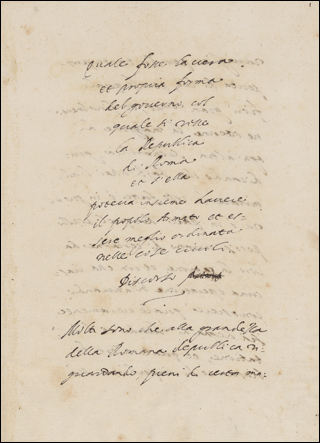 Quale fosse la vera
et propria forma
del governo, col
quale si resse
la Republica
di Roma
et s'ella
poteva insieme havere
il popolo Armato et es-
sere meglio ordinata
nelle cose civili
Discorso
Molti sono che alla grandezza
della Romana Republica ri-
guardando, pieni di certa ma-